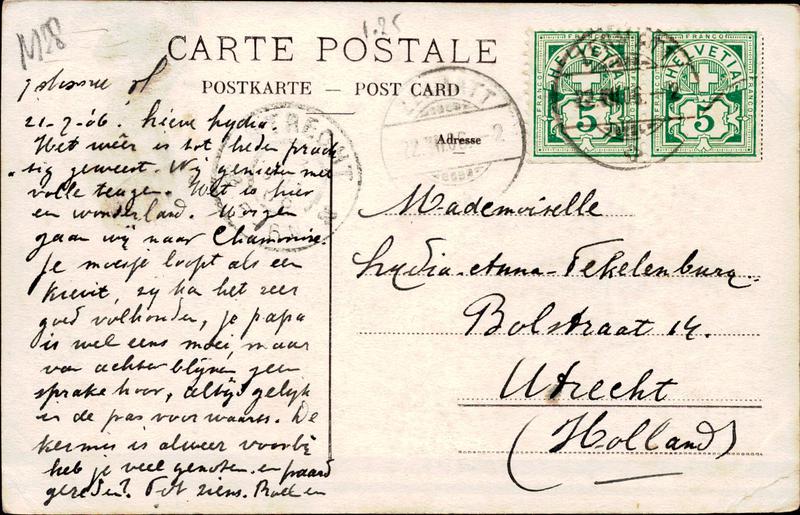 M28
1.25
CARTE POSTALE
POSTKARTE — POST CARD
Adresse
HELVETIA
FRANCO
5
HELVETIA
FRANCO
5
21-7-06. Lieve Lydia.
Het weêr is tot heden prach
tig geweest. Wij genieten met
volle teugen. Het is hier
een wonderland. Morgen
gaan wij naar Chamonix.
Je moesje loopt als een
kievit, zij kan het zeer
goed volhouden, je papa
is wel eens moei, maar
van achter blijven geen
sprake hoor, altijd gelijk
in de pas voorwaarts. De
kermis is alweer voorbij
heb je veel genoten en paard
gereden? Tot ziens.
Mademoiselle
Lydia-Anna-Tekelenburg.
Bolstraat 14.
Utrecht
(Holland)
UTRECHT